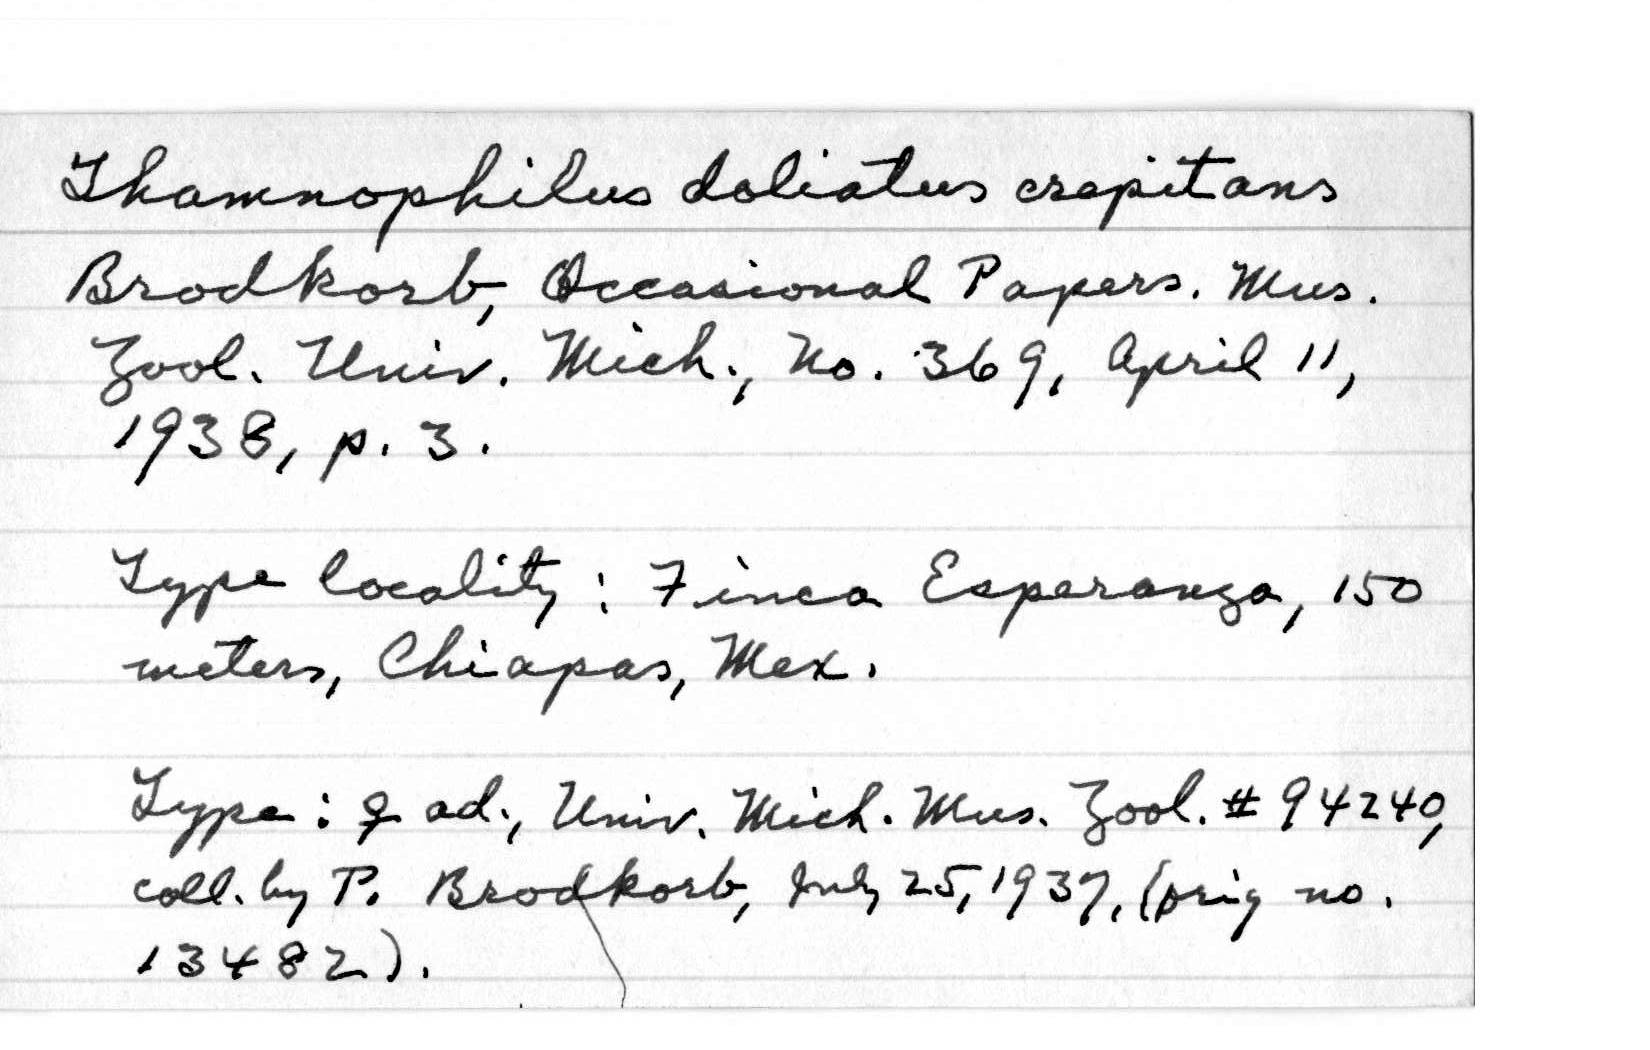 Thamnophilus doliatus crepitans
Brodkorb, Occasional Papers. Mus.
Zool. Univ. Mich., No. 369, April 11,
1938, p. 3.
Type locality: Finca Esperanza, 150
meters, Chiapas, Mex.
Type: ♀ ad., Univ. Mich. Mus. Zool. # 94240,
coll. by P. Brodkorb, July 25, 1937, (orig no.
13482).